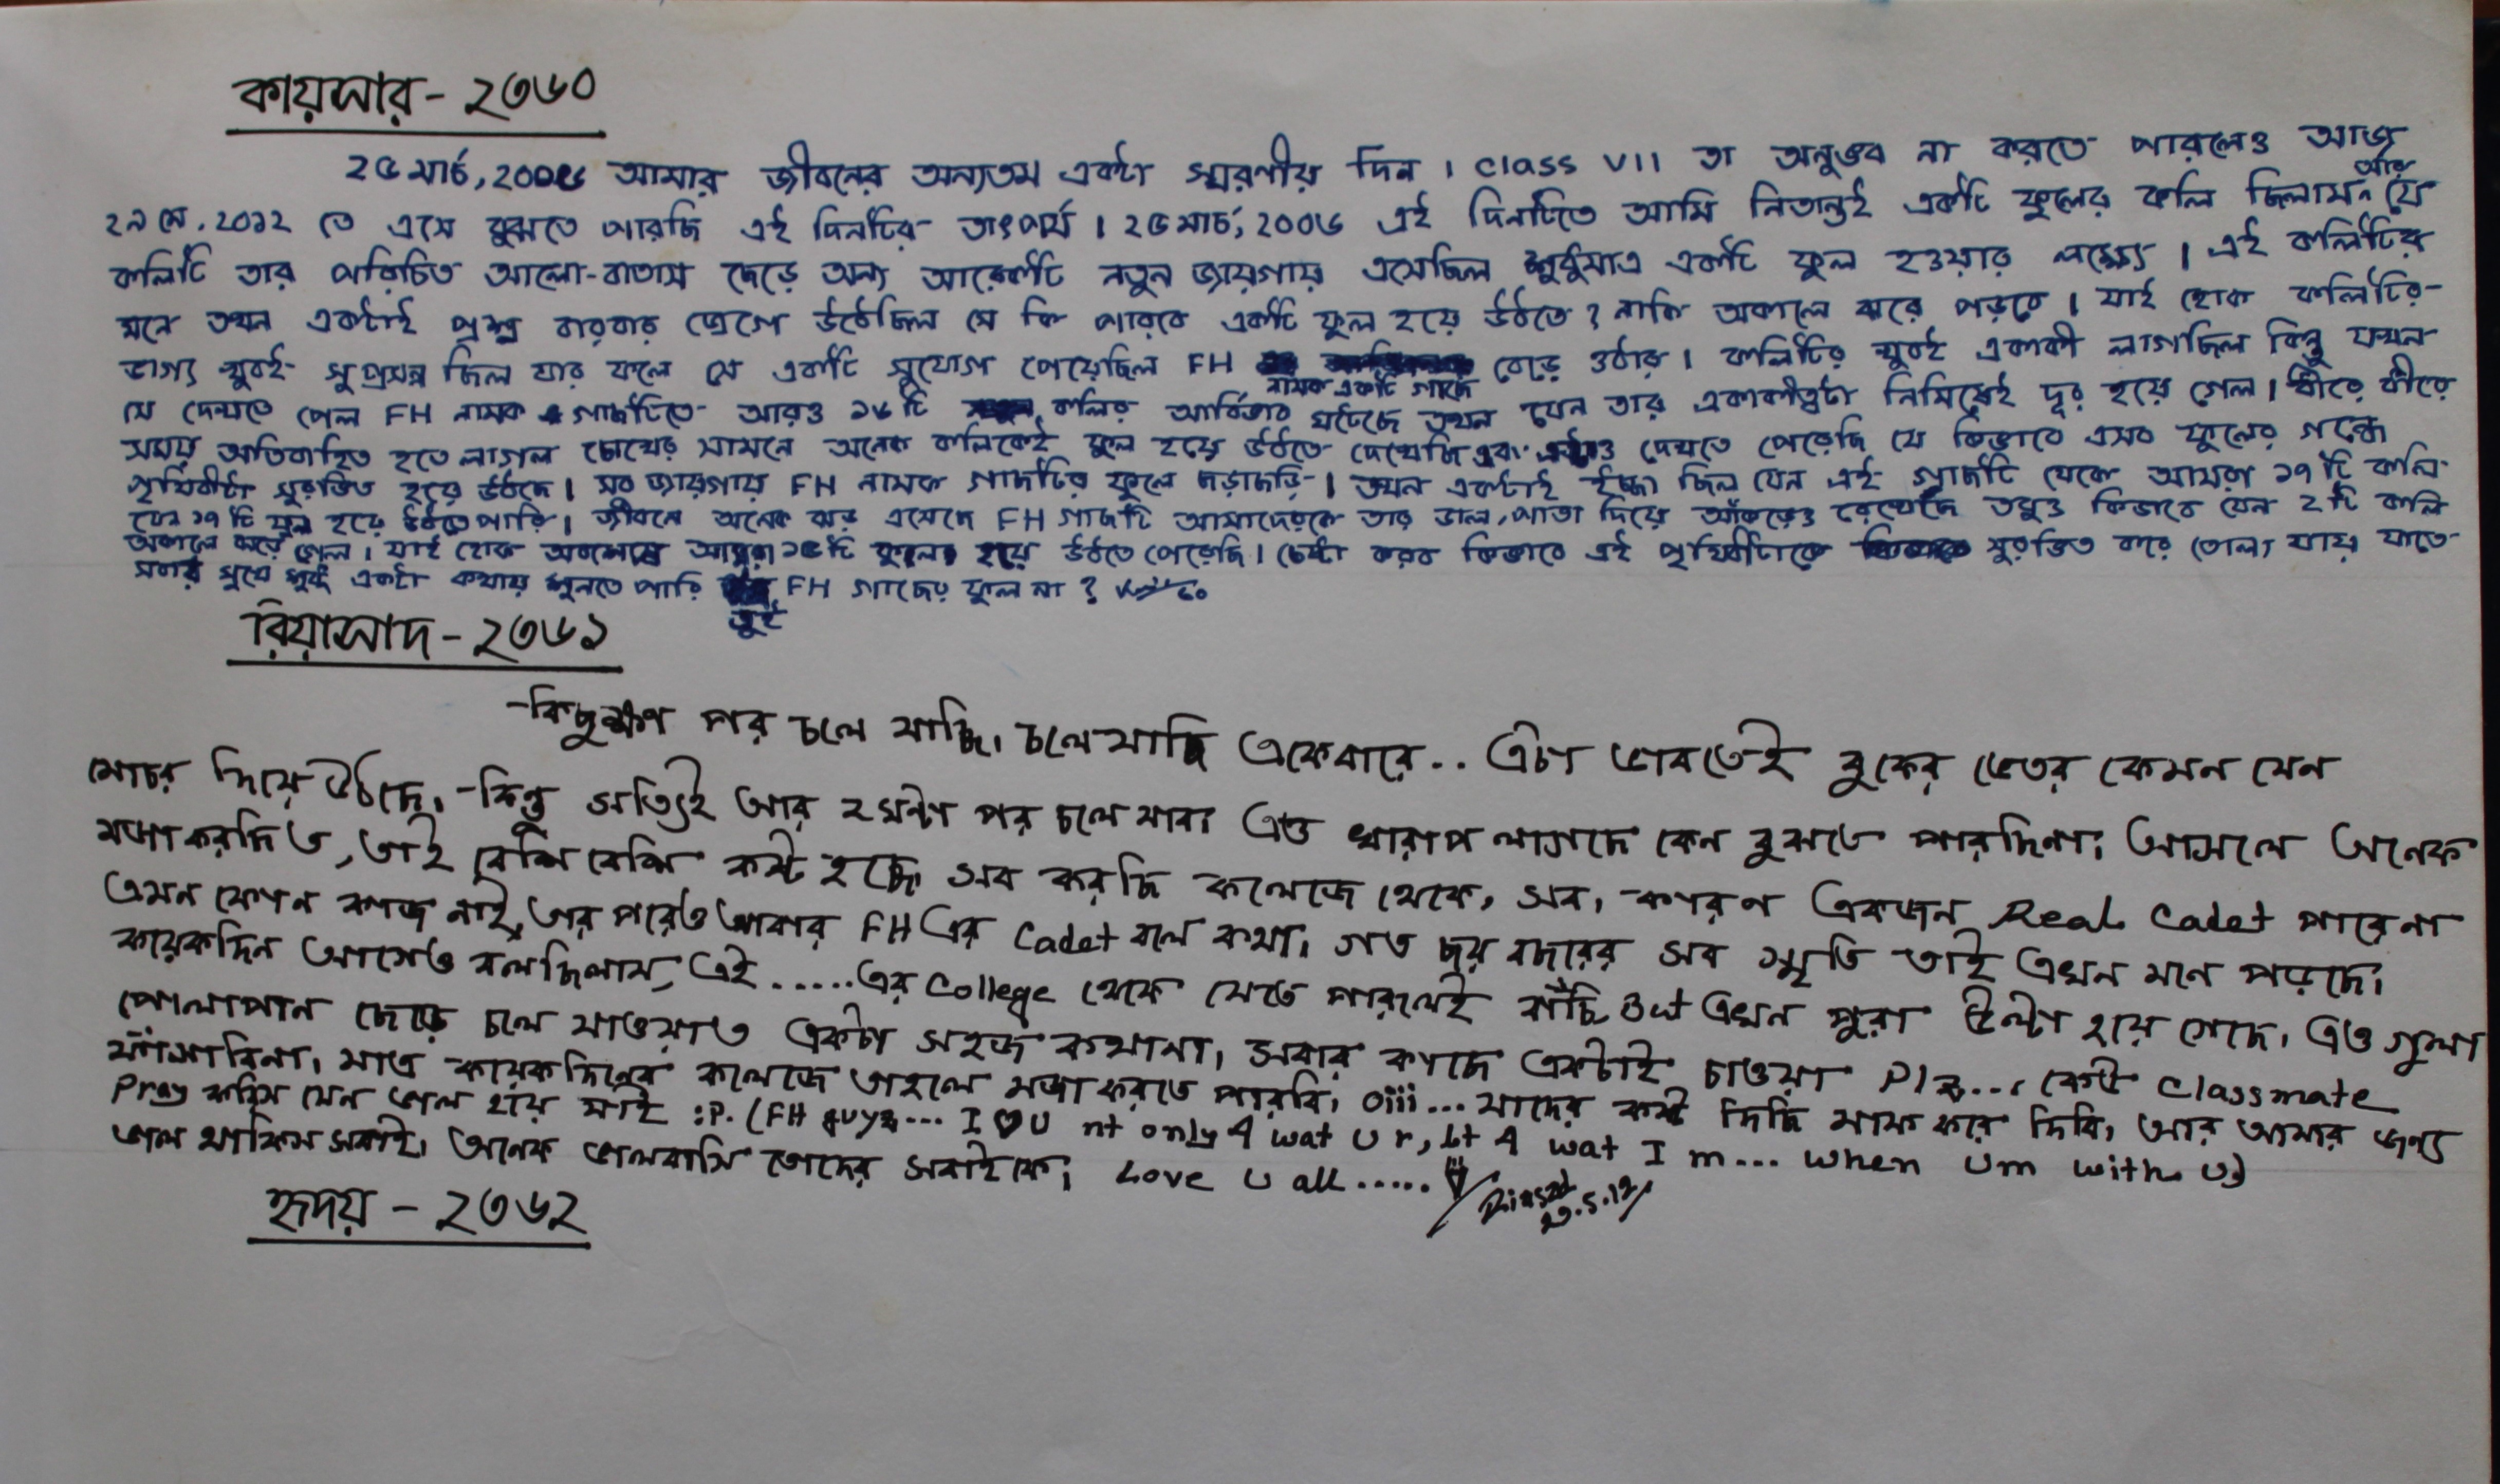 কায়সার - ২৩৬০
২৫ মার্চ, ২০০৬ আমার জীবনের অন্যতম একটা স্মরণীয় দিন। class VII তা অনুভব না করতে পারলেও আজ
২৯ মে, ২০১২ তে এসে বুঝতে পারছি এই দিনটির তাৎপর্য। ২৫ মার্চ, ২০০৬ এই দিনটিতে আমি নিতান্তই একটি ফুলের কলি ছিলাম আর যে
কলিটি তার পরিচিত আলো-বাতাস ছেড়ে অন্য আরেকটি নতুন জায়গায় এসেছিল শুধুমাত্র একটি ফুল হওয়ার লক্ষ্যে। এই কলিটির
মনে তখন একটাই প্রশ্ন বারবার জেগে উঠেছিল সে কি পারবে একটি ফুল হয়ে উঠতে? নাকি অকালে ঝরে পড়বে। যাই হোক কলিটির
ভাগ্য খুবই সুপ্রসন্ন ছিল যার ফলে সে একটি সুযোগ পেয়েছিল FH নামক একটি গাছে বেড়ে ওঠার। কলিটির খুবই একাকী লাগছিল কিন্তু যখন
সে দেখতে পেল FH নামক গাছটিতে আরও ১৬ টি কলির আর্বিভাব ঘটেছে তখন যেন তার একাকীত্বটা নিমিষেই দূর হয়ে গেল। ধীরে ধীরে
সময় অতিবাহিত হতে লাগল চোখের সামনে অনেক কলিকেই ফুল হয়ে উঠতে দেখেছি এবং এটাও দেখতে পেরেছি যে কিভাবে এসব ফুলের গন্ধে
পৃথিবীটা সুরভিত হয়ে উঠছে। সব জায়গায় FH নামক গাছটির ফুলে ছড়াছড়ি। তখন একটাই ইচ্ছা ছিল যেন এই গাছটি থেকে আমরা ১৭ টি কলি
যেন ১৭ টি ফুল হয়ে উঠতে পারি। জীবনে অনেক ঝড় এসেছে FH গাছটি আমাদেরকে তার ডাল, পাতা দিয়ে আঁকড়েও রেখেছে তবুও কিভাবে যেন ২ টি কলি
অকালে ঝরে গেল। যাই হোক অবশেষে আমরা ১৫ টি ফুল হয়ে উঠতে পেরেছি। চেষ্টা করব কিভাবে এই পৃথিবীটাকে সুরভিত করে তোলা যায় যাতে
সবার মুখে শুধু একটা কথায় শুনতে পারি তুই FH গাছের ফুল না?
রিয়াসাদ - ২৩৬১
কিছুক্ষণ পর চলে যাচ্ছি। চলে যাচ্ছি একেবারে.. এটা ভাবতেই বুকের ভেতর কেমন যেন
মোচর দিয়ে উঠছে। কিন্তু সত্যিই আর ২ ঘন্টা পর চলে যাব। এত খারাপ লাগছে কেন বুঝতে পারছিনা। আসলে অনেক
মজা করছি ত, তাই বেশি বেশি কষ্ট হচ্ছে। সব করছি কলেজে থেকে, সব। কারণ একজন Real Cadet পারেনা
এমন কোন কাজ নাই, তার পরেও আবার FH এর Cadet বলে কথা। গত ছয় বছরের সব স্মৃতি তাই এখন মনে পড়ছে।
কয়েকদিন আগেও বলছিলাম, এই .....এর College থেকে যেতে পারলেই বাঁচি But এখন পুরা উল্টা হয়ে গেছে। এত গুলা
পোলাপান ছেড়ে চলে যাওয়াত একটা সহজ কথা না। সবার কাছে একটাই চাওয়া Plz..., কেউ classmate
ফাঁসাবিনা। মাত্র কয়েকদিনের কলেজে তাহলে মজা করতে পারবি। oiii... যাদের কষ্ট দিছি মাফ করে দিবি। আর আমার জন্য
Pray করিস যেন ভাল হয়ে যাই :P. (FH guyz... I ♡ U nt only 4 wat U r, bt 4 wat I m... when Um with U)
ভাল থাকিস সবাই। অনেক ভালবাসি তোদের সবাইকে। Love U all.....
Riasad
29.5.12
হৃদয় - ২৩৬২